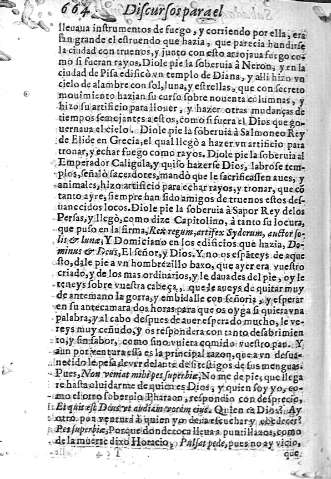 664 Discursos para el
lleuaua instrumentos de fuego, y corriendo por ella, era
tan grande el estruendo que hazia, que parecia hundirse
la ciudad con truenos, y junto con esto arrojaua fuego co-
mo si fueran rayos. Diole pie la soberuia à Neron, y en la
ciudad de Pisa edificò vn templo de Diana, y alli hizo vn
cielo de alambre con sol, luna, y estrellas, que con secreto
mouimiento hazian su curso sobre nouenta columnas, y
hizo su artificio para llouer, y hazer otras mudanças de
tiempos semejantes a estos, como si fuera el Dios que go-
uernaua el cielo. Diole pie la soberuia à Salmoneo Rey
de Elide en Grecia, el qual llegò a hazer vn artificio para
tronar, y echar fuego como rayos. Diole pie la soberuia al
Emperador Caligula, y quiso hazerse Dios, labròse tem-
plos, señalò sacerdotes, mandò que le sacrificassen aues, y
animales, hizo artificio para echar rayos, y tronar, que cō
tanto ayre, siempre han sido amigos de truenos estos des-
uanecidos locos. Diole pie la soberuia à Sapor Rey delos
Persas, y llegò, como dize Capitolino, à tanto su locura,
que puso en la firma, Rex regum, artifex Syderum, auctor so-
lis & luna; Y Domiciano en los edificios que hazia, Do-
minus & Deus, El señor, y Dios. Y no os espāteys de aque
sto, dale pie a vn hombrezillo baxo, que ayer era vuestro
criado, y de los mas ordinarios, y le dauades del pie, oy le
teneys sobre vuestra cabeça, que le aueys de quitar muy
de antemano la gorra, y embidalle con señoria, y esperar
en su antecamara dos horas para que os oyga si quiera vna
palabra, y al cabo despues de auer esperado mucho, le ve-
reys muy ceñudo, y os respondera con tanto desabrimien
to, y sin sabor, como sino vuiera comido vuestro pan. Y
aun por ventura essa es la principal razon, que a vn desua-
necido le pesa de ver delante de si testigos de sus menguas.
Pues, Non veniat mihi pes superbiæ, No me de pie, que llega
re hasta oluidarme de quien es Dios, y quien soy yo, co-
mo el otro soberuio Pharaon, respondio con desprecio,
Et quis est Deus vt audiam vocem eius. Quien es Dios? Ay
otro por ventura à quien yo deua escuchar, y obedecer?
Pes superbiæ, Porque donde toca llega a puntillazos, como
de la muerte dixo Horacio, Pulsat pede, pues no ay vicio,
que